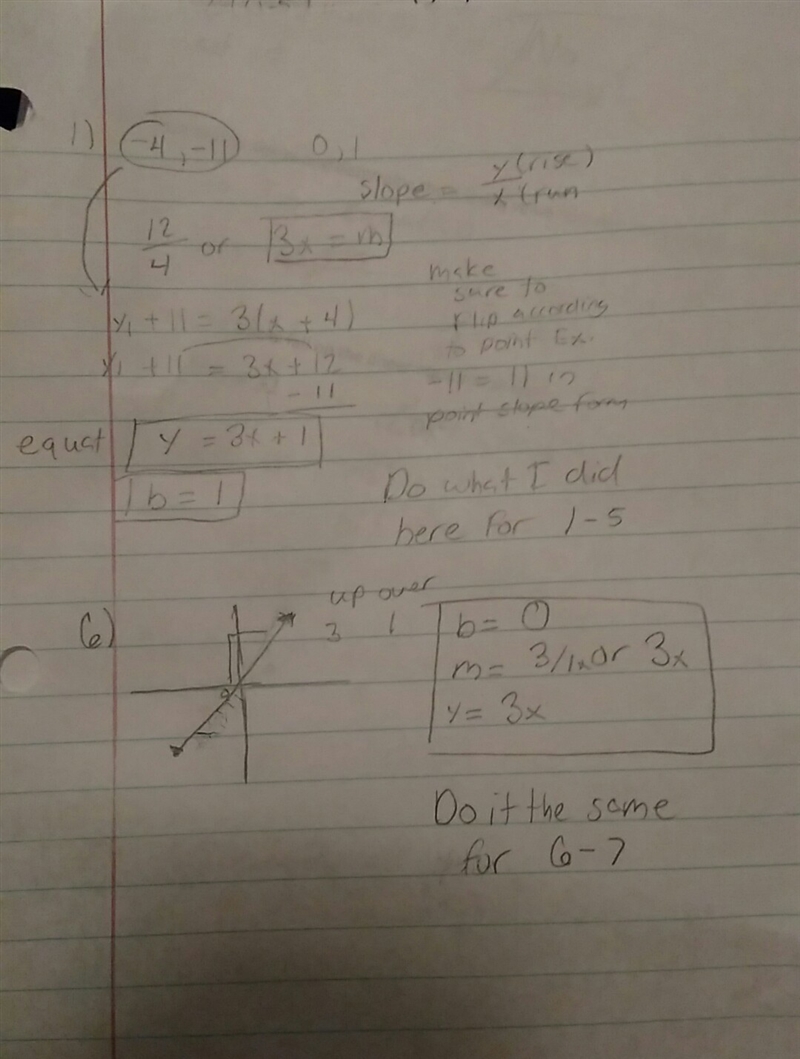 1) -4, -11 0, 1
slope = y(rise)
x (run
12
4
or 3x = m
make
sure to
flip according
to point Ex.
-11 = 11 in
point slope form
y₁ + 11 = 3(x + 4)
y₁ + 11 = 3x + 12
- 11
equat y = 3x + 1
b = 1
Do what I did
here for 1-5
6)
up over
3 1
b = 0
m = 3/1x or 3x
y = 3x
Do it the same
for 6-7